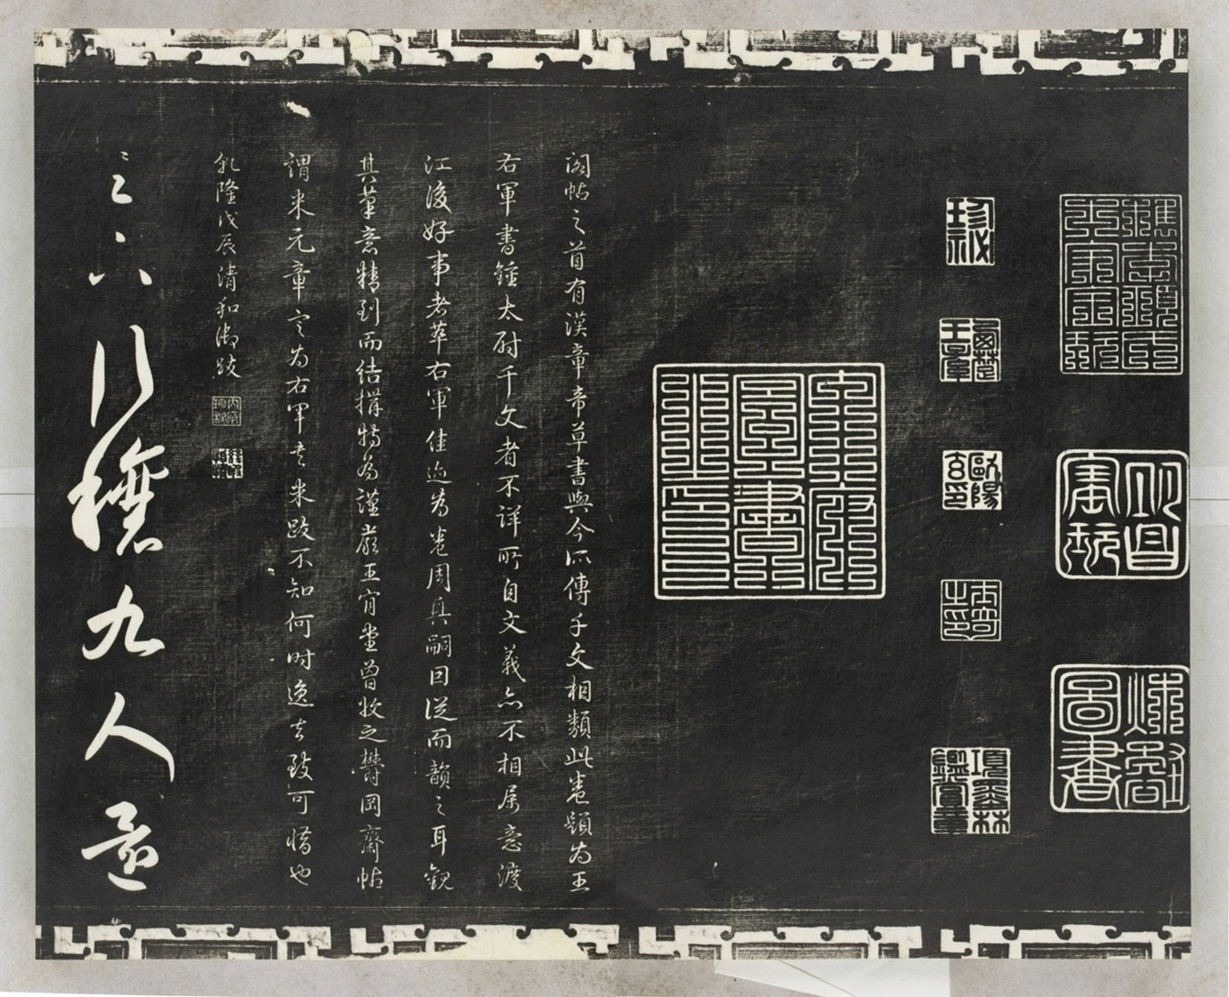 項墨林鑑賞章
歐陽玄印
珍祕
閣帖之首有漢章帝草書與今所傳千文相類此卷題為王
右軍書鍾太尉千文者不詳所自文義亦不相属意渡
江後好事者萃右軍佳迹為卷周興嗣因從而韻之耳觀
其筆意精到而結搆特為謹嚴王肯堂曾收之鬱岡齋帖
謂米元章定為右軍書米跋不知何時逸去致可惜也
乾隆戊辰清和御跋
足下行穰九人還